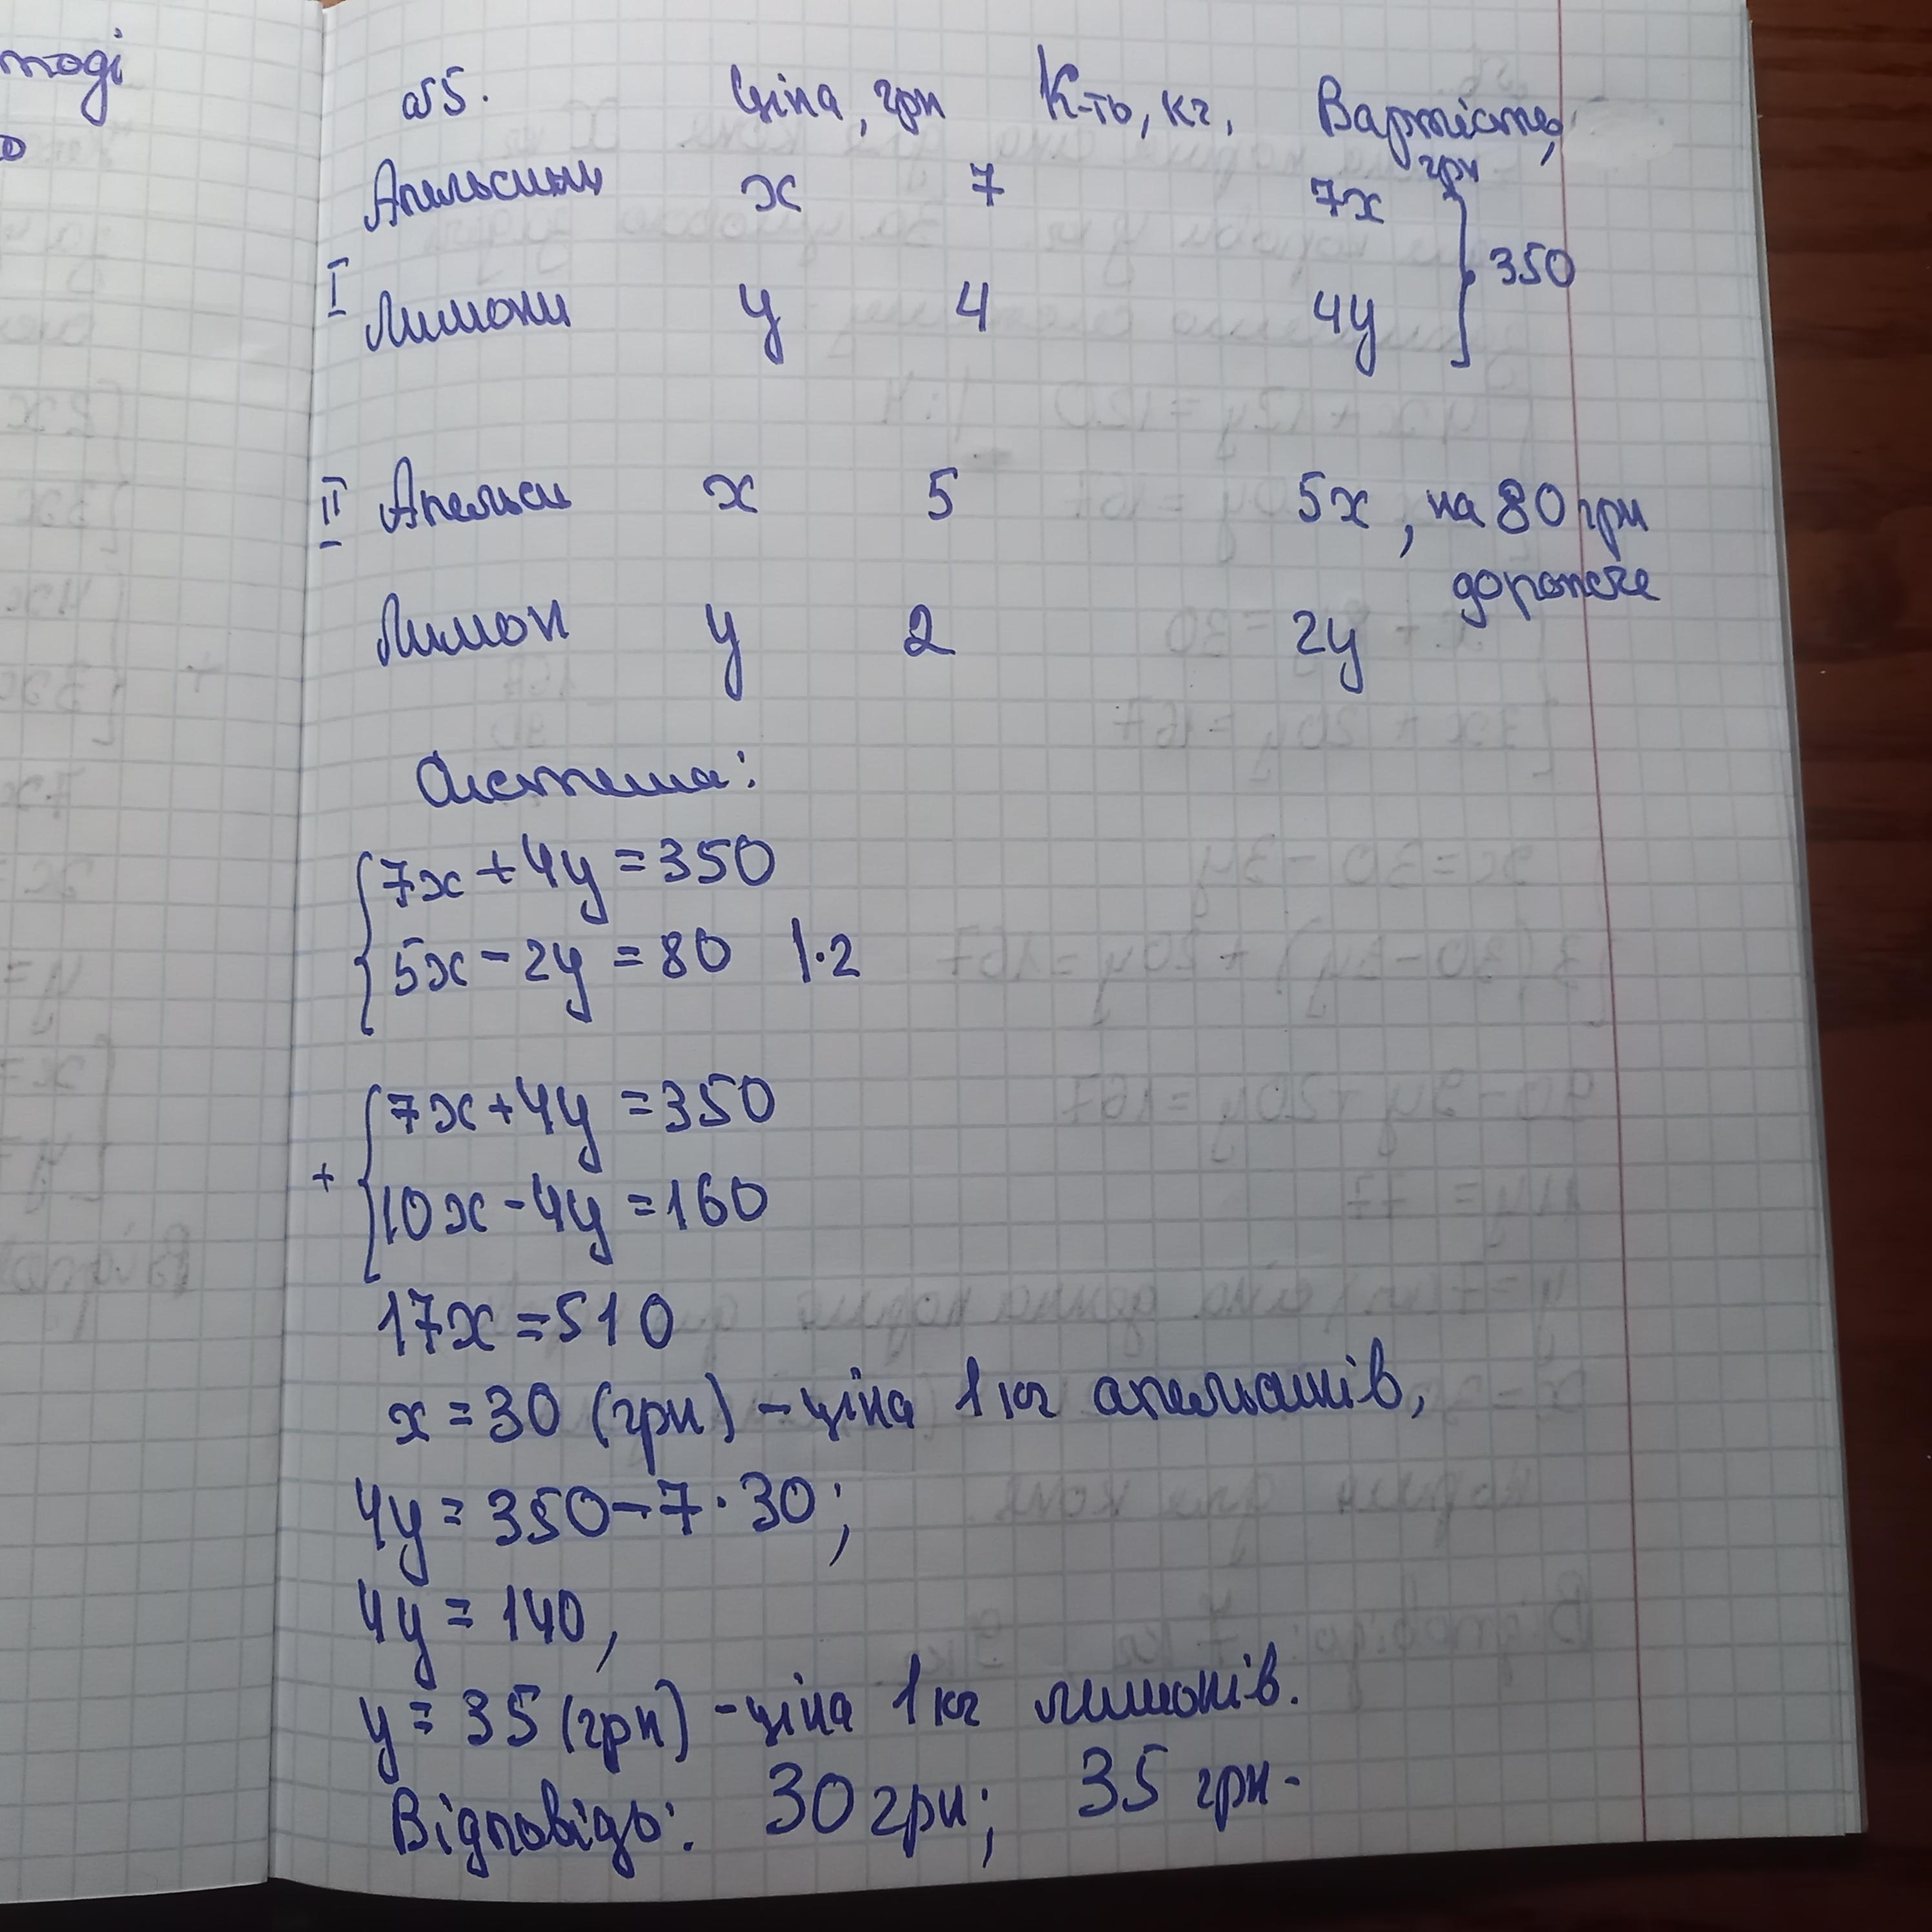 тоді
№5. Ціна, грн К-ть, кг, Вартість, грн
Апельсини x 7 7x
I } 350
Лимони y 4 4y
II Апельси x 5 5x, на 80 грн
дорожче
Лимон y 2 2y
Система:
{ 7x + 4y = 350
5x - 2y = 80 |·2
+ { 7x + 4y = 350
10x - 4y = 160
17x = 510
x = 30 (грн) - ціна 1 кг апельсинів,
4y = 350 - 7 · 30;
4y = 140,
y = 35 (грн) - ціна 1 кг лимонів.
Відповідь: 30 грн; 35 грн.